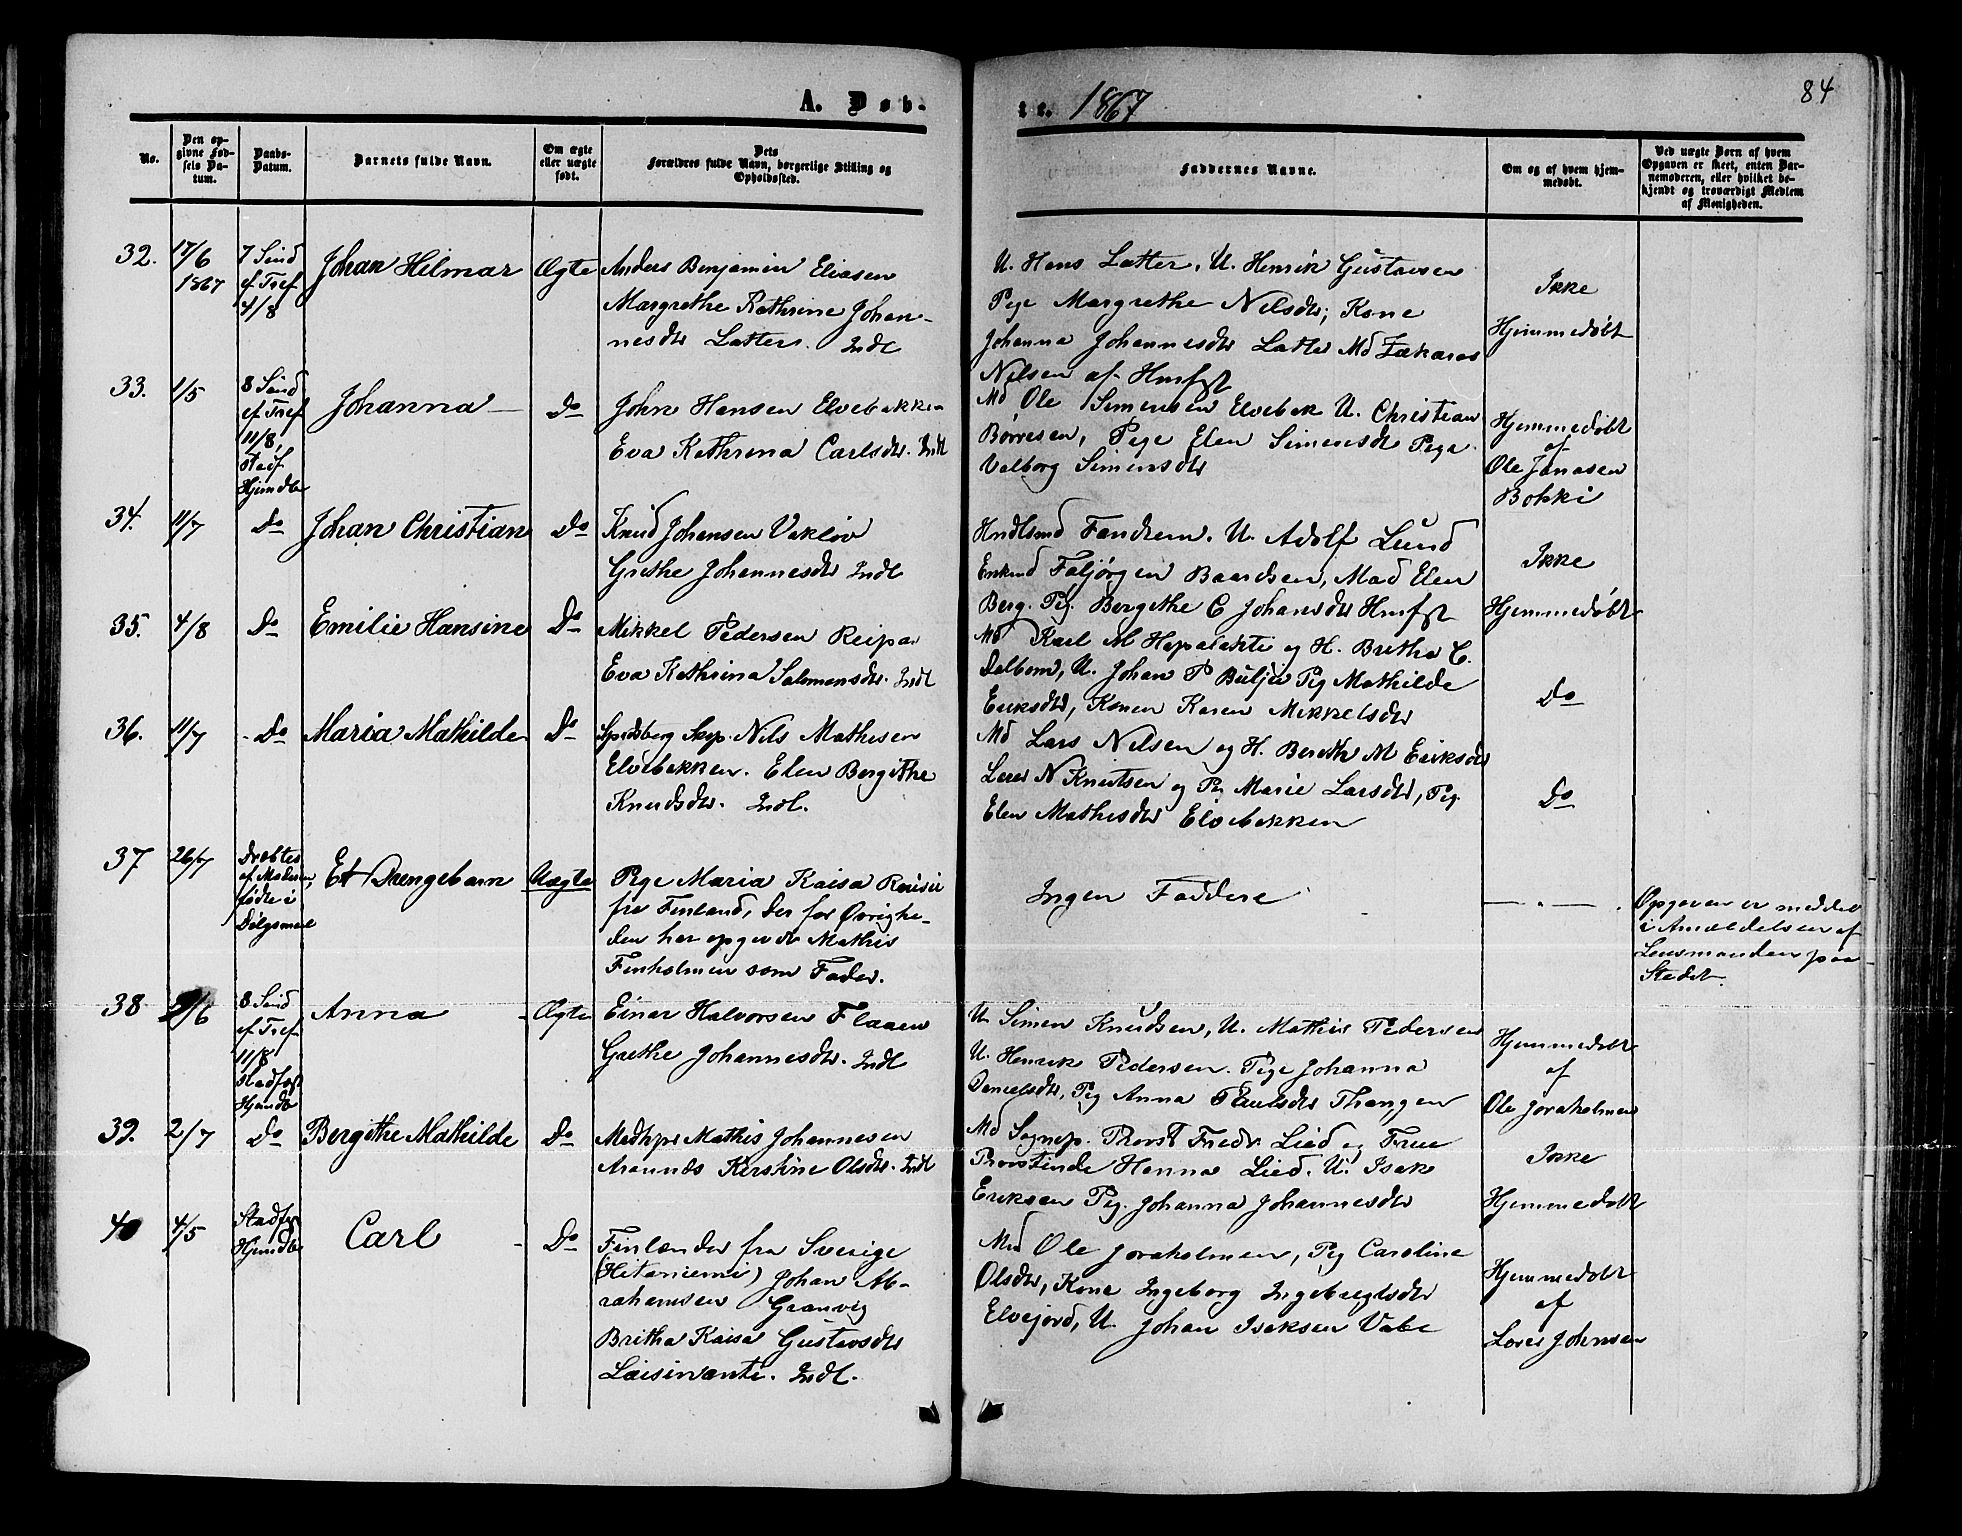 A. Døb-
te. 1867
84
No.
Den op-
givne Fød-
sels Da-
tum.
Daabs-
Datum.
Barnets fulde Navn.
Om ægte
eller uægte
født.
Dets
Forældres fulde Navn, borgerlige Stilling og
Opholdssted.
Faddernes Navne.
Om og af hvem hjem-
medøbt.
Ved uægte Børn af hvem
Opgaven er skeet, enten Bar-
nemoderen, eller hvilket be-
kjendt og troværdigt Medlem
af Menigheden.
32.
17/6
1867
7 Sønd
ef Tref
4/8
Johan Hilmar
Ægte
Anders Benjamin Eliasen
Margrethe Kathrine Johan-
nesdtr Latter. Indl
U. Hans Latter, U. Henrik Gustavsen
Pige Margrethe Nilsdtr, Kone
Johanna Johannesdtr Latter Md Zakarias
Nilsen af Hmfst
Ikke
Hjemmedøbt
33.
1/5
8 Sønd
ef Tref
11/8
Stadf
Hjemdb
Johanna
Do
John Hansen Elvebakke
Eva Kathrina Carlsdtr. Indl
Md Ole Simensen Elvebak U. Christian
Børresen, Pige Elen Simensdt Pige
Valborg Simensdtr
Hjemmedøbt
af
Ole Jonasen
Bokki
34.
11/7
Do
Johan Christian
Do
Knud Johansen Vakløv
Grethe Johannesdtr Indl
Hndlsmd Fandrem. U. Adolf Lund
Enkmd Faljørgen Baardsen, Mad Elen
Berg. Pig. Bergithe C Johansdtr Hmfst
Ikke
Hjemmedøbt
35.
4/8
Do
Emilie Hansine
Do
Mikkel Pedersen Reipas
Eva Kathrina Salomonsdtr. Indl
Md Karl M Hapalahti og H. Britha C.
Dalbom, U. Johan P Buljo Pig Mathilde
Eriksdtr, Konen Karen Mikkelsdtr
Do
36.
11/7
Do
Maria Mathilde
Do
Spidsberg Skp. Nils Mathisen
Elvebakken. Elen Bergithe
Knudsdtr. Indl.
Md Lars Nilsen og H. Bereth M Eriksdt
Lars N Knutsen og Pg Marie Larsdtr, Pig
Elen Mathisdtr Elvebakken
Do
37
26/7
Dræbtes
af Moderen,
fødte i
Dølgsmaal
Et Drengebarn
Uægte
Pige Maria Kaisa
fra Finland, der for Øvrighe-
den har opgivet Mathis
Finholmen som Fader.
Ingen Faddere
Opgaven er meddelt
i Anmeldelsen af
Lensmanden paa
Stedet.
38
/6
8 Sønd
ef Tref
11/8
Stadfæst
Hjemdb
Anna
Ægte
Einar Halvorsen Flaaen
Grethe Johannesdtr. Indl
U. Simon Knudsen, U. Mathis Pedersen
U. Henrik Pedersen. Pige Johanna
Danielsdtr, Pig Anna Paulsdtr Thangen
Hjemmedøbt
af
Ole Joraholmen
39.
2/7
Do
Bergithe Mathilde
Do
Medhjpr Mathis Johannesen
Aronnæs Kirstine Olsdtr. Indl
Md Sognep. Provst Fredr Lied og Frue
Provstinde Hanna Lied. U. Isak
Eriksen Pig. Johanna Johannesdtr
Ikke
Hjemmedøbt
40
4/5
Stadfst
Hjemdb
Carl
Do
Finlænder fra Sverige
(Hitaniemi) Johan Ab-
rahamsen Granvig
Britha Kaisa Gustavsdtr
Laisinanti. Indl.
Md Ole Joraholmen, Pig Caroline
Olsdtr, Kone Ingeborg Ingebrigtsdtr
Elvejord, U. Johan Isaksen Vabe
Hjemmedøbt
af
Lars Johnsen